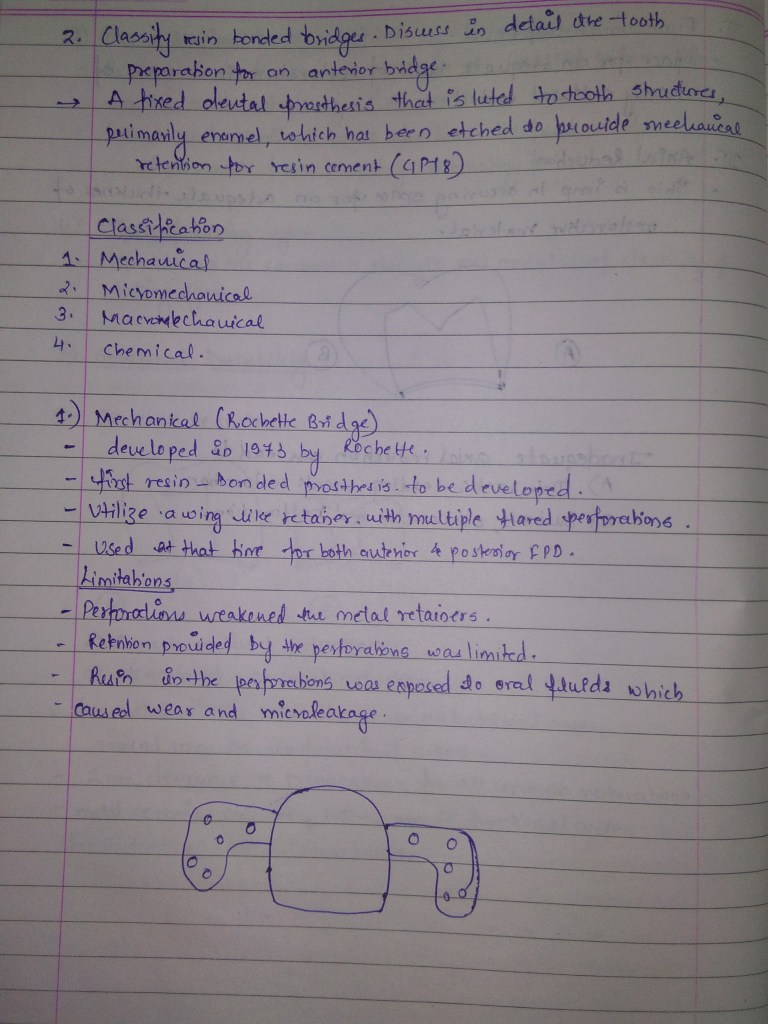 2. Classify resin bonded bridges. Discuss in detail the tooth
preparation for an anterior bridge.
→ A fixed dental prosthesis that is luted to tooth structures,
primarily enamel, which has been etched to provide mechanical
retention for resin cement (GPT8)
Classification
1. Mechanical
2. Micromechanical
3. Macromechanical
4. Chemical.
1.) Mechanical (Rochette Bridge)
- developed in 1973 by Rochette.
- first resin-bonded prosthesis. to be developed.
- Utilize a wing like retainer. with multiple flared perforations.
- Used at that time for both anterior & posterior FPD.
Limitations
- Perforations weakened the metal retainers.
- Retention provided by the perforations was limited.
- Resin in the perforations was exposed to oral fluids which
- caused wear and microleakage.